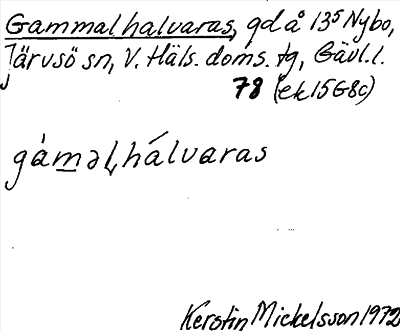 Gammalhalvaras, gd å 13⁵ Nybo,
Järvsö sn, V. Häls. doms. tg, Gävl. l.
78 (ek 15G8c)
gàməl,hálvaras
Kerstin Mickelsson 1972